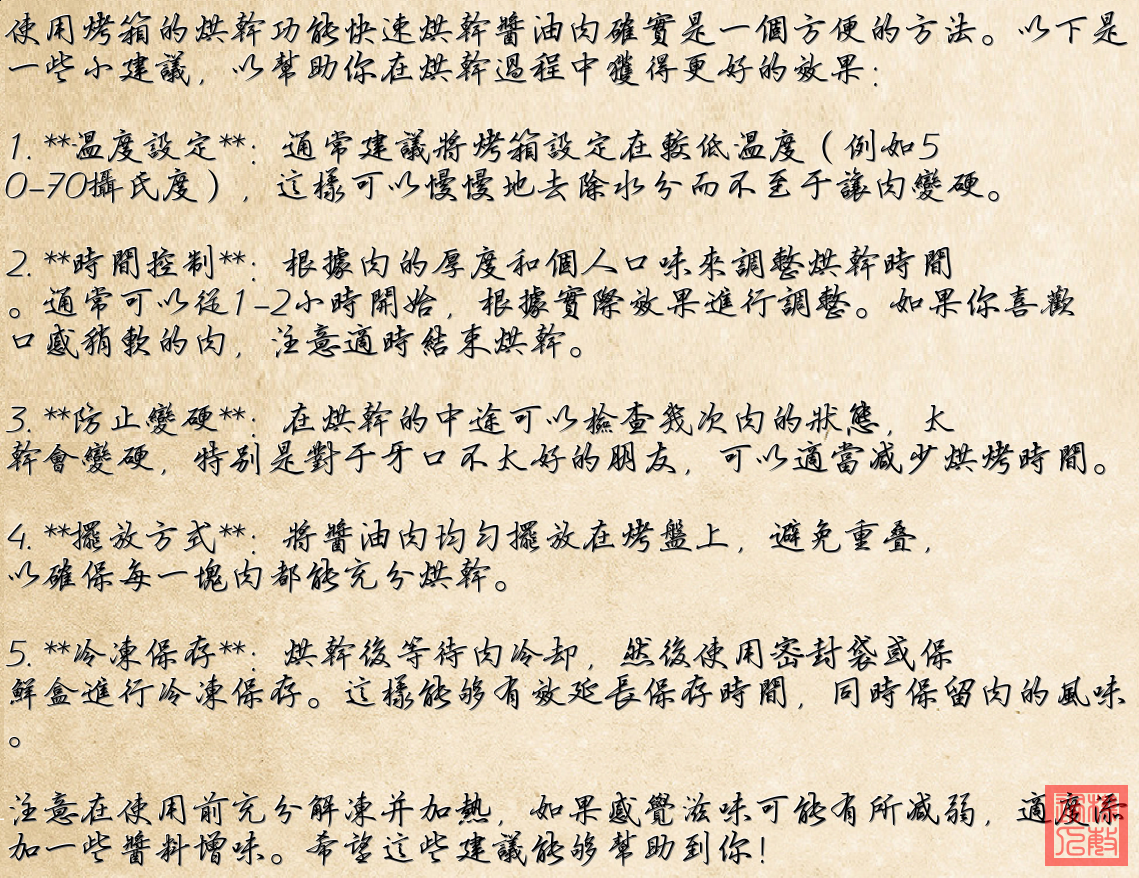 使用烤箱的烘幹功能快速烘幹醬油肉確實是一個方便的方法。以下是
一些小建議，以幫助你在烘幹過程中獲得更好的效果：
1. **溫度設定**：通常建議將烤箱設定在較低溫度（例如5
0-70攝氏度），這樣可以慢慢地去除水分而不至于讓肉變硬。
2. **時間控制**：根據肉的厚度和個人口味來調整烘幹時間
。通常可以從1-2小時開始，根據實際效果進行調整。如果你喜歡
口感稍軟的肉，注意適時結束烘幹。
3. **防止變硬**：在烘幹的中途可以檢查幾次肉的狀態，太
幹會變硬，特别是對于牙口不太好的朋友，可以適當减少烘烤時間。
4. **擺放方式**：將醬油肉均勻擺放在烤盤上，避免重叠，
以確保每一塊肉都能充分烘幹。
5. **冷凍保存**：烘幹後等待肉冷却，然後使用密封袋或保
鮮盒進行冷凍保存。這樣能够有效延長保存時間，同時保留肉的風味
。
注意在使用前充分解凍并加熱，如果感覺滋味可能有所减弱，適度添
加一些醬料增味。希望這些建議能够幫助到你！